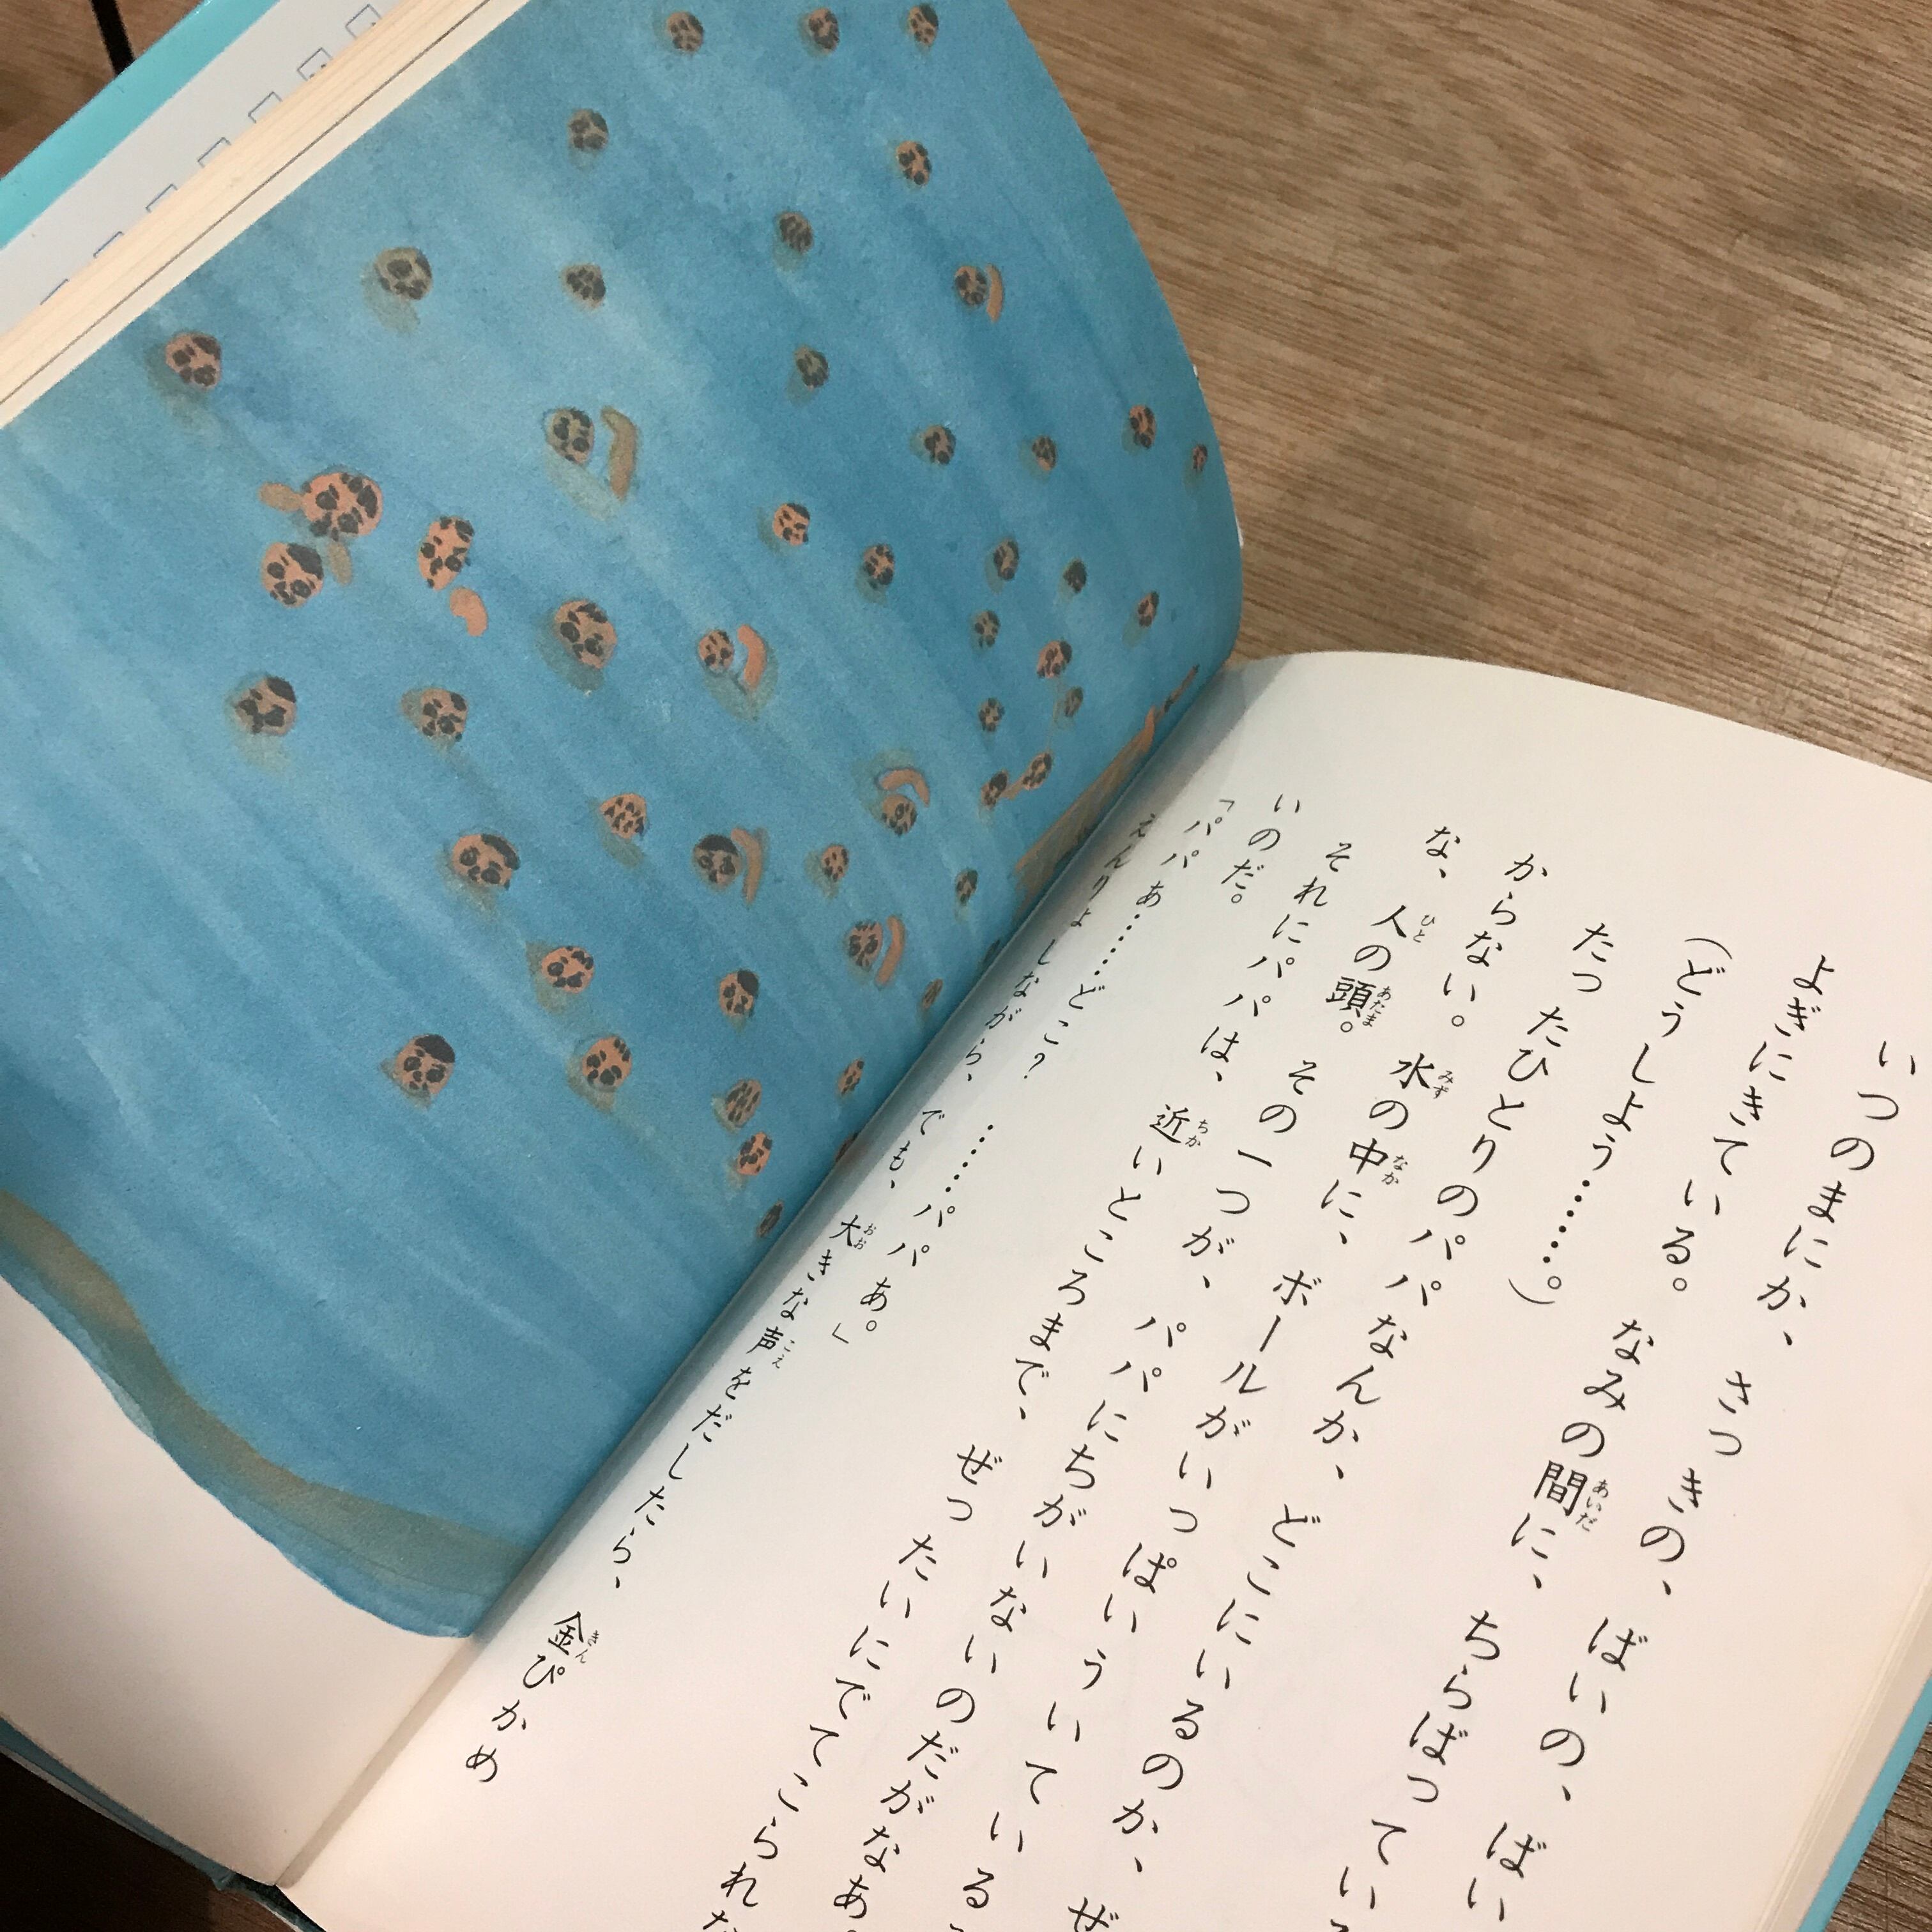 いつのまにか、さっきの、ばいの、ばい
よぎにきている。なみの間に、ちらばってい
（どうしよう……。）
たったひとりのパパなんか、どこにいるのか、ぜ
からない。水の中に、ボールがいっぱいういている
な、人の頭。その一つが、パパにちがいないのだがなあ。
それにパパは、近いところまで、ぜったいにでてこられな
いのだ。
「パパあ……どこ？……パパあ。」
えんりょしながら、でも、大きな声をだしたら、金ぴかめ